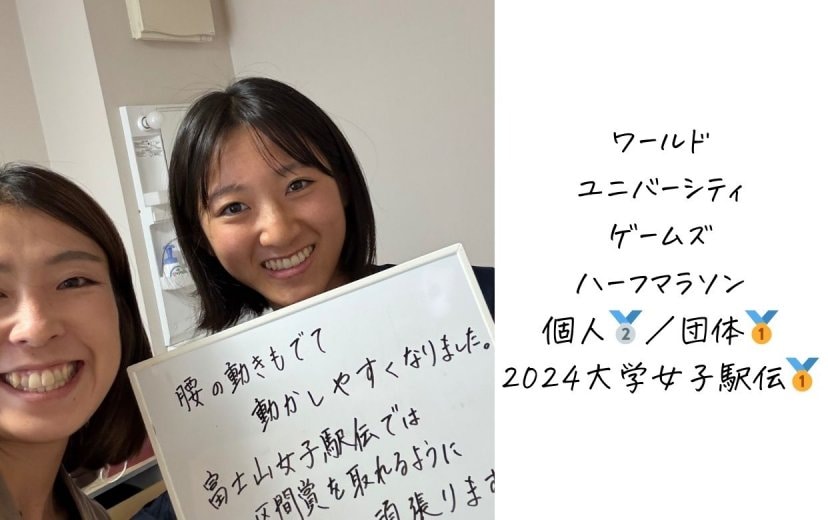 腰の動きもでて
動かしやすくなりました。
富士山女子駅伝では
区間賞を取れるように
頑張ります
ワールド
ユニバーシティ
ゲームズ
ハーフマラソン
個人🥈／団体🥇
2024大学女子駅伝🥇